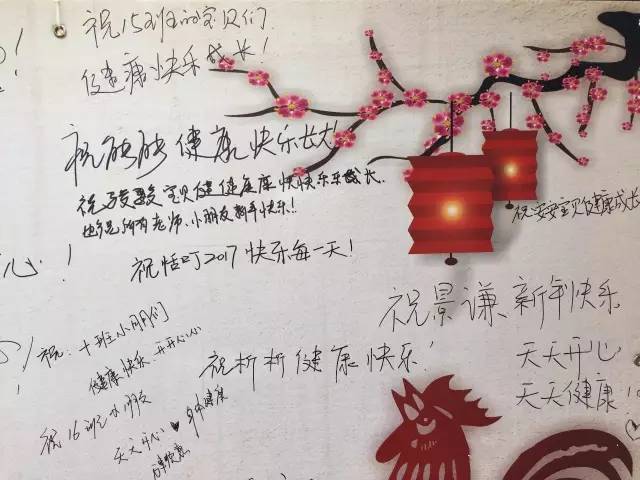 祝15班的宝贝们
健康快乐成长!
祝能能健康快乐长大!
祝骏骏宝贝健健康康快快乐乐成长.
也祝所有老师、小朋友新年快乐!!
祝安安宝贝健康成长
心!
祝恬叮2017快乐每一天!
祝景谦新年快乐
天天开心
天天健康!
祝:十班小朋友们
健康快乐、开开心心
祝析析健康快乐!
祝16班小朋友
天天开心
身体健康